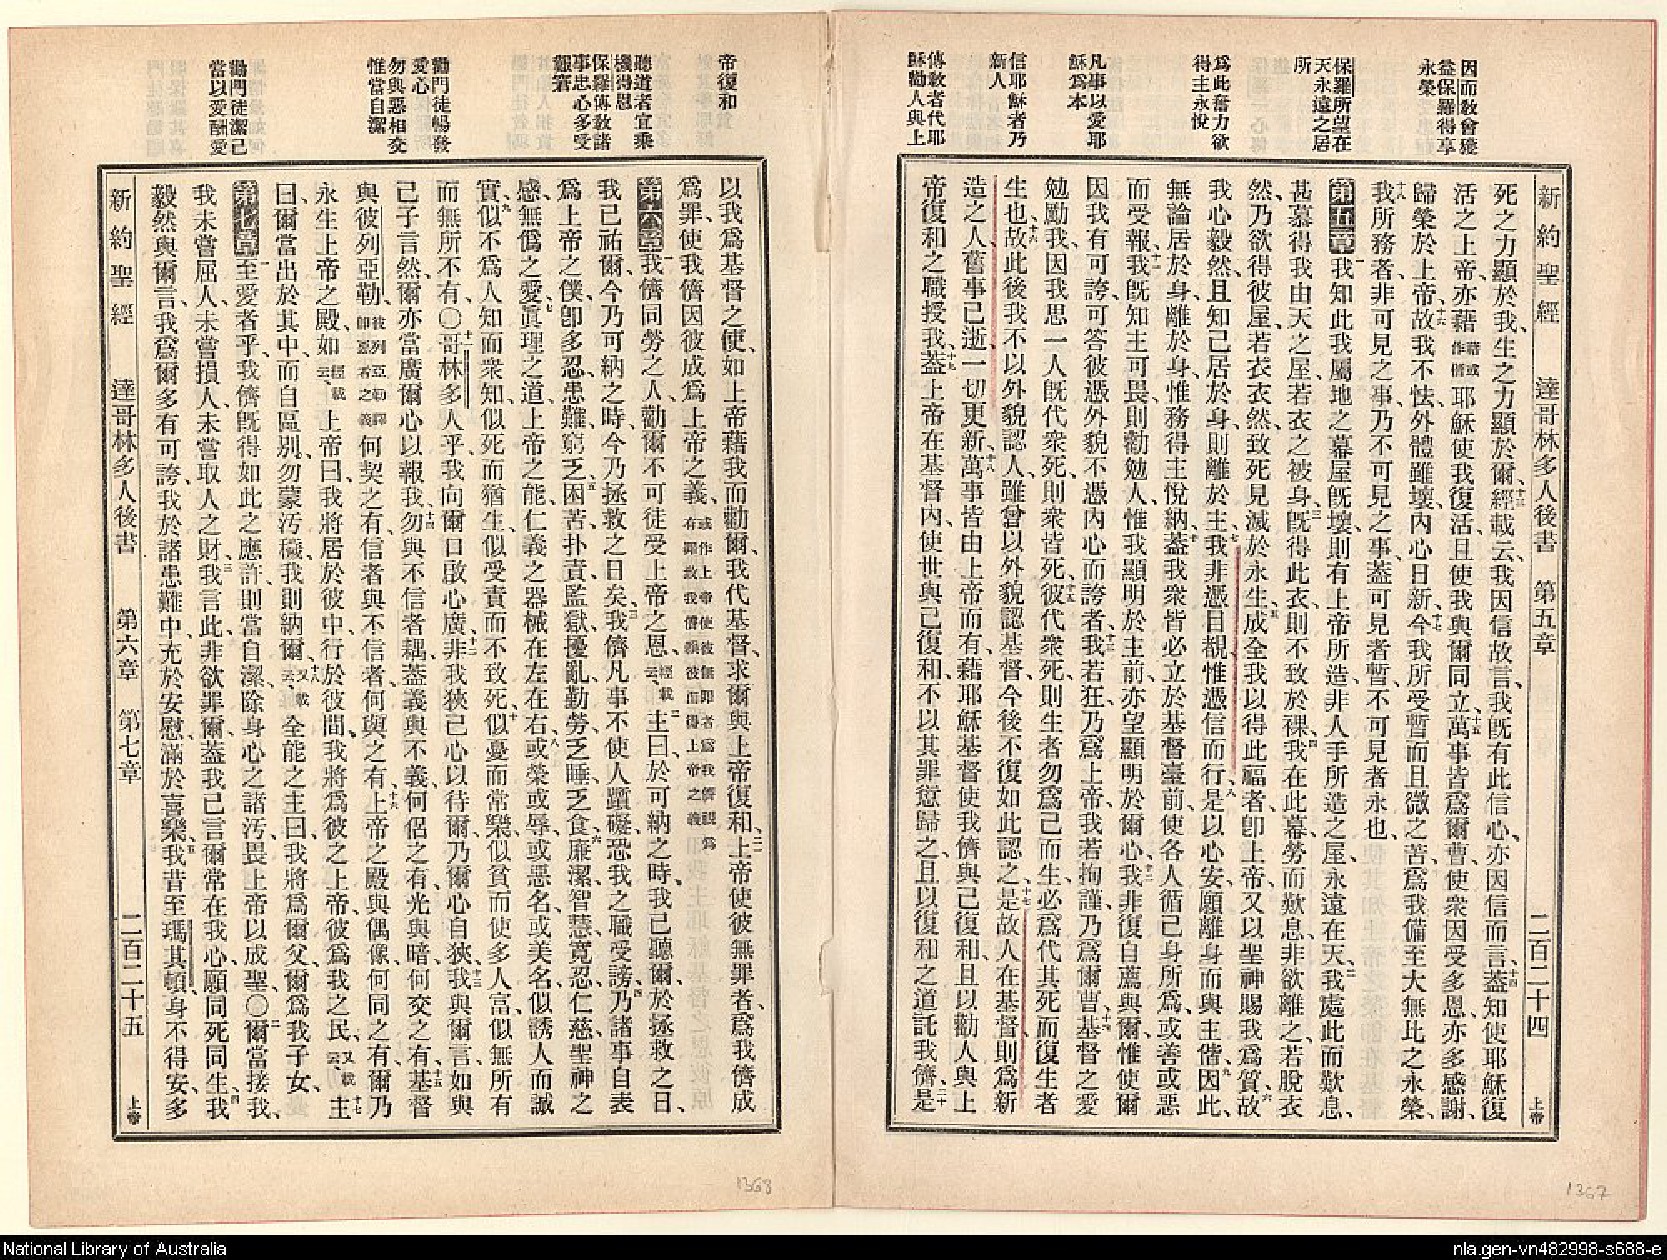 新約聖經 達哥林多人後書 第五章 二百二十四 上帝
因而敎會獲
益保羅得享
永榮
保羅所望在
天永遠之居
所
爲此奮力欲
得主永悅
凡事以愛耶
穌爲本
信耶穌者乃
新人
傳敎者代耶
穌勸人與上
死之力顯於我、生之力顯於爾、十三經載云、我因信故言、我旣有此信心、亦因信而言、十四蓋知使耶穌復
活之上帝、亦藉藉或作偕耶穌使我復活、且使我與爾同立、十五萬事皆爲爾曹、使衆因受多恩、亦多感謝、
歸榮於上帝、十六故我不怯、外體雖壞、內心日新、十七今我所受暫而且微之苦、爲我備至大無比之永榮、
十八我所務者、非可見之事、乃不可見之事、蓋可見者暫、不可見者永也、
第五章 一我知此我屬地之幕屋旣壞、則有上帝所造、非人手所造之屋、永遠在天、二我處此而歎息、
甚慕得我由天之屋、若衣之被身、三旣得此衣、則不致於裸、四我在此幕、勞而歎息、非欲離之、若脫衣
然、乃欲得彼屋、若衣衣然、致死見滅於永生、五成全我以得此福者、卽上帝、又以聖神賜我爲質、六故
我心毅然、且知己居於身、則離於主、七我非憑目覩、惟憑信而行、八是以心安、願離身而與主偕、九因此、
無論居於身、離於身、惟務得主悅納、十蓋我衆皆必立於基督臺前、使各人循己身所爲、或善或惡
而受報、十一我旣知主可畏、則勸勉人、惟我顯明於主前、亦望顯明於爾心、十二我非復自薦與爾、惟使爾
因我有可誇、可答彼憑外貌不憑內心而誇者、十三我若狂、乃爲上帝、我若拘謹、乃爲爾曹、十四基督之愛
勉勵我、因我思一人旣代衆死、則衆皆死、十五彼代衆死、則生者勿爲己而生、必爲代其死而復生者
生也、十六故此後我不以外貌認人、雖曾以外貌認基督、今後不復如此認之、十七是故人在基督、則爲新
造之人、舊事已逝、一切更新、十八萬事皆由上帝而有、藉耶穌基督使我儕與己復和、且以勸人與上
帝復和之職授我、十九蓋上帝在基督內、使世與己復和、不以其罪愆歸之、且以復和之道託我儕、二十是
帝復和
聽道者宜乘
機得恩
保羅傳敎諸
事忠心多受
艱窘
勸門徒暢發
愛心
勿與惡相交
惟當自潔
勸門徒潔己
當以愛酬愛
以我爲基督之使、如上帝藉我而勸爾、我代基督、求爾與上帝復和、二一上帝使彼無罪者、爲我儕成
爲罪、使我儕因彼成爲上帝之義、或作上帝使彼無卽者爲我儕視爲有罪致我儕賴彼而得上帝之義
第六章 一我儕同勞之人、勸爾不可徒受上帝之恩、二經載云、主曰、於可納之時、我已聽爾、於拯救之日、
我已祐爾、今乃可納之時、今乃拯救之日矣、三我儕凡事不使人躓礙、恐我之職受謗、四乃諸事自表
爲上帝之僕、卽多忍患難窮乏困苦、五扑責監獄擾亂勤勞乏睡乏食、六廉潔智慧寬忍仁慈聖神之
感、無僞之愛、七眞理之道、上帝之能、仁義之器械在左在右、八或榮或辱、或惡名或美名、似誘人而誠
實、九似不爲人知而衆知、似死而猶生、似受責而不致死、十似憂而常樂、似貧而使多人富、似無所有
而無所不有、〇十一哥林多人乎、我向爾口啟心廣、十二非我狹己心以待爾、乃爾心自狹、十三我與爾言、如與
己子言然、爾亦當廣爾心以報我、十四勿與不信者耦、蓋義與不義何侶之有、光與暗何交之有、十五基督
與彼列亞勒彼列亞勒譯卽惡者之義何契之有、信者與不信者何與之有、十六上帝之殿與偶像何同之有、爾乃
永生上帝之殿、如經載云、上帝曰、我將居於彼中、行於彼間、我將爲彼之上帝、彼爲我之民、十七又載云、主
曰、爾當出於其中、而自區別、勿蒙汚穢、我則納爾、十八又載云、全能之主曰、我將爲爾父、爾爲我子女、
第七章 一至愛者乎、我儕旣得如此之應許、則當自潔、除身心之諸汚、畏上帝以成聖、〇二爾當接我、
我未嘗屈人、未嘗損人、未嘗取人之財、三我言此、非欲罪爾、蓋我已言爾常在我心、願同死同生、四我
毅然與爾言、我爲爾多有可誇、我於諸患難中、充於安慰、滿於喜樂、五我昔至瑪其頓、身不得安、多
新約聖經 達哥林多人後書 第六章 第七章 二百二十五 上帝
1368
1367
National Library of Australia
nla.gen-vn482998-s688-e